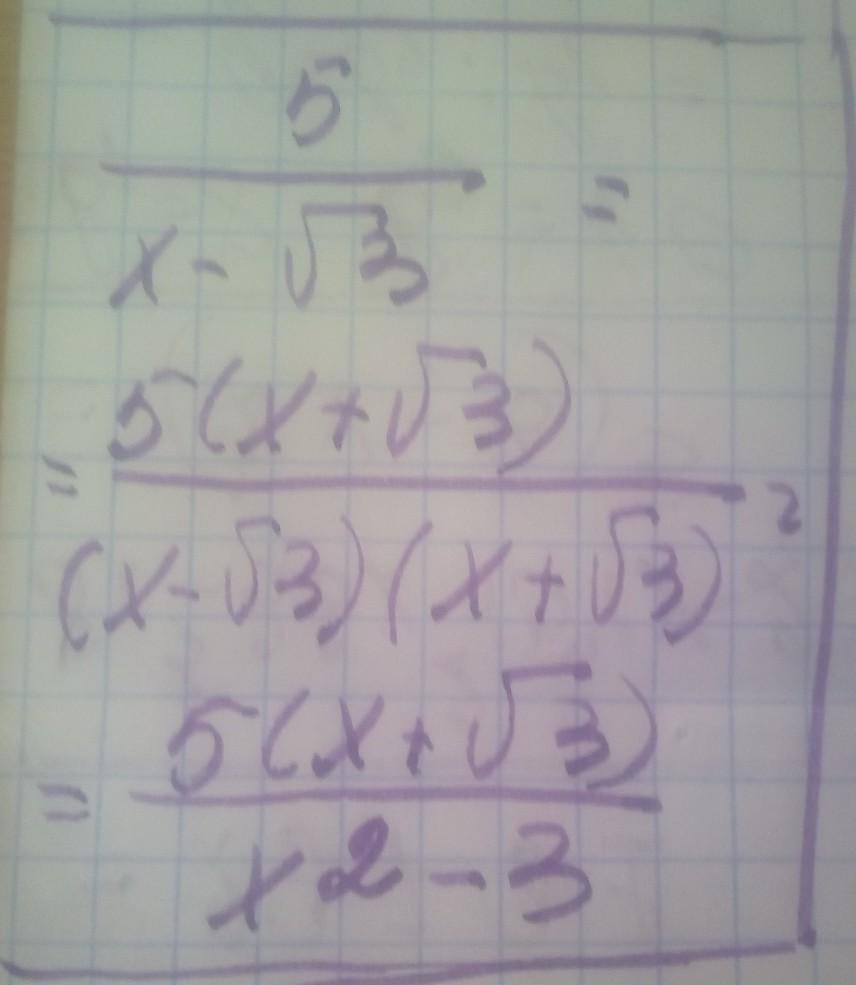 5
x - √3 =
= 5(x + √3)
(x - √3)(x + √3) =
= 5(x + √3)
x2 - 3